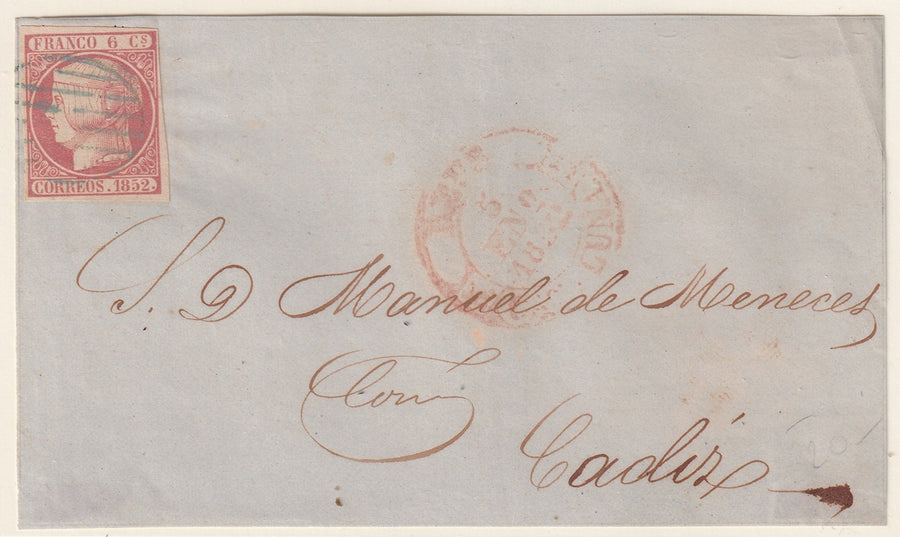 FRANCO 6 Cs
CORREOS. 1852.
S. D Manuel de Meneces
Cadiz
20